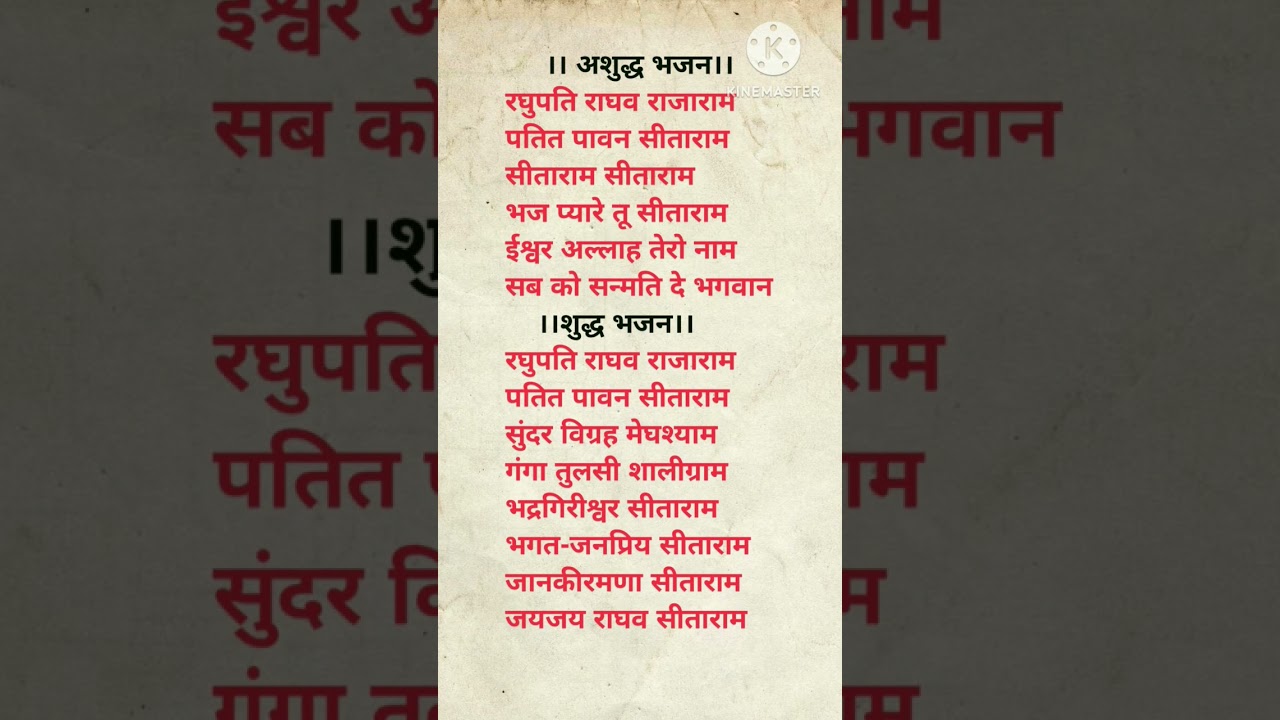 ।। अशुद्ध भजन।।
KINEMASTER
रघुपति राघव राजाराम
पतित पावन सीताराम
सीताराम सीताराम
भज प्यारे तू सीताराम
ईश्वर अल्लाह तेरो नाम
सब को सन्मति दे भगवान
।।शुद्ध भजन।।
रघुपति राघव राजाराम
पतित पावन सीताराम
सुंदर विग्रह मेघश्याम
गंगा तुलसी शालीग्राम
भद्रगिरीश्वर सीताराम
भगत-जनप्रिय सीताराम
जानकीरमणा सीताराम
जयजय राघव सीताराम